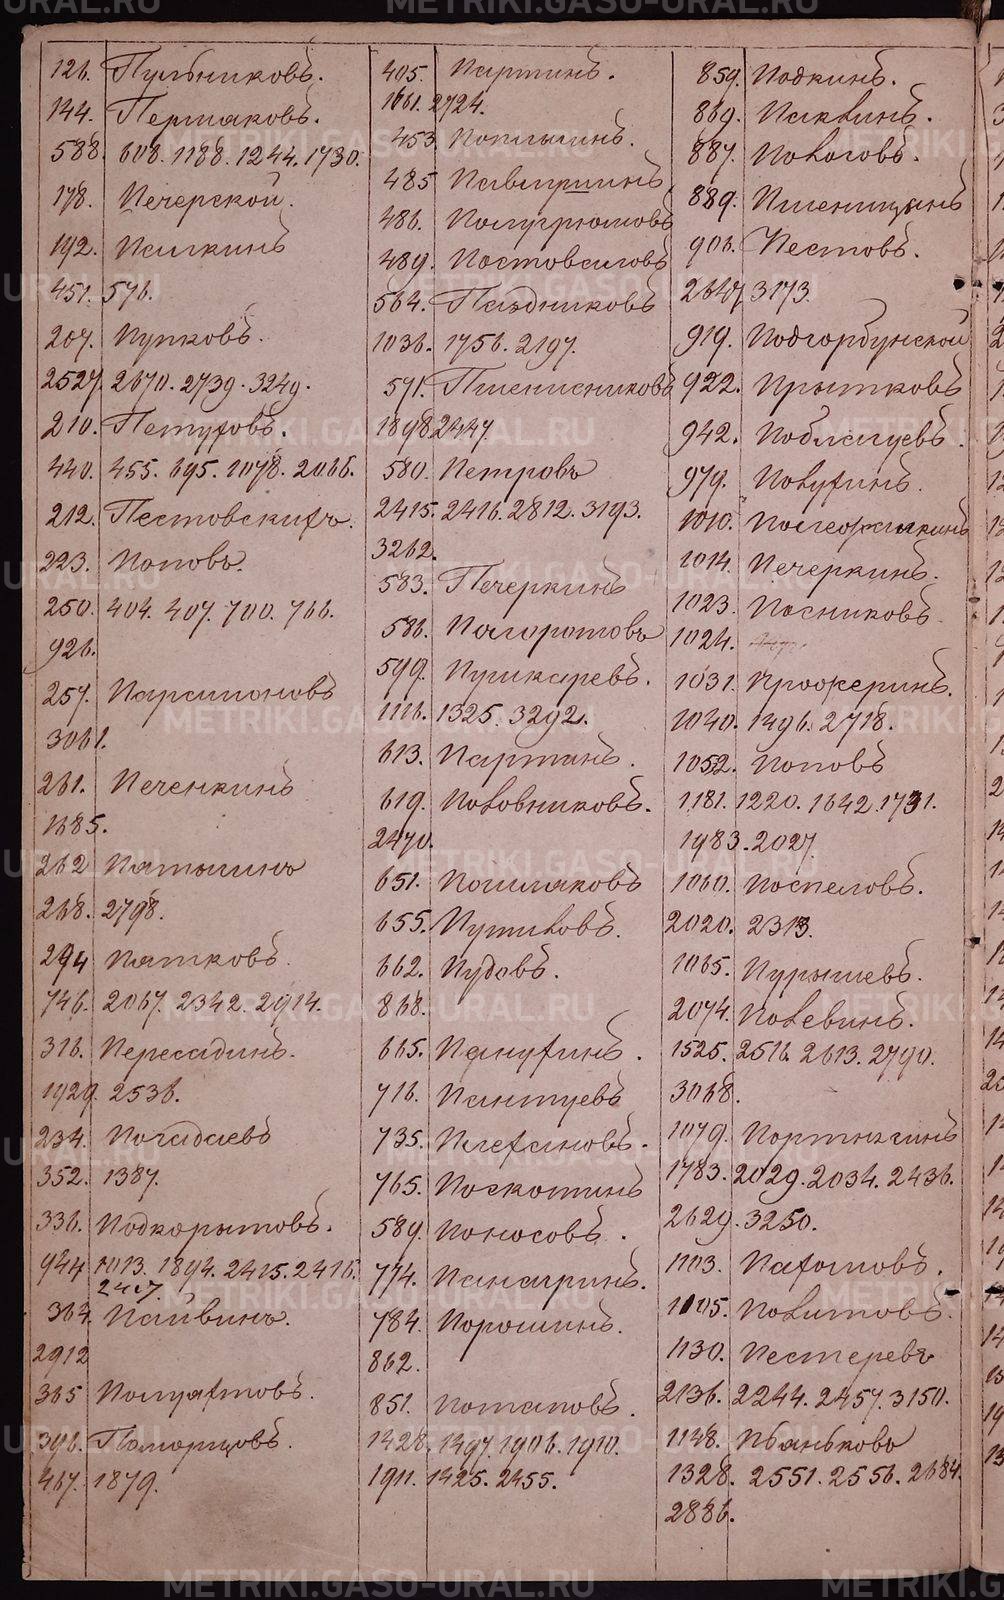 126. Пульниковъ.
144. Пермяковъ.
588. 608. 1188. 1244. 1730.
178. Печерской.
192. Палкинъ
451. 576.
207. Пупковъ.
2527. 2670. 2739. 3249.
210. Петуховъ.
440. 455. 695. 1078. 2066.
212. Пестовскихъ.
223. Поповъ.
250. 404. 407. 700. 766.
926.
257. Парамоновъ
3061.
261. Печенкинъ
1685.
262 Патысинъ
268. 2798.
294 Пятковъ.
746. 2067. 2342. 2914.
316. Пересадинъ.
1929. 2536.
234. Погадаевъ
352. 1387.
336. Подкорытовъ.
944 1013. 1894. 2415. 2416.
2417.
364. Пайвинъ.
2912
365 Полуяхтовъ.
396. Поморцовъ.
467. 1879.
405. Партинъ.
1661. 2724.
453 Поплыгинъ.
485 Паваринъ
486. Полугрюмовъ
489. Постоваловъ
564. Паздниковъ
1036. 1756. 2197.
571. Пшенисниковъ
1898 2447.
580. Петровъ
2415. 2416. 2812. 3193.
3262.
583. Печеркинъ
586. Пагоротовъ
599. Пушкаревъ.
1116. 1325. 3292.
613. Партинъ.
619. Половниковъ.
2470.
651. Пошляковъ
655. Путиловъ.
662. Пудовъ.
868.
665. Панухинъ.
716. Пантуевъ
735. Плехановъ.
765. Поскотинъ
589. Поносовъ.
774. Панагринъ.
784. Порошинъ.
862.
851. Потаповъ.
1428. 1497. 1906. 1910.
1911. 1425. 2455.
859. Подкинъ.
869. Паклинъ.
887. Пологовъ.
889. Пшеницынъ
906. Пестовъ.
2647 3173.
919. Подгорбунской
922. Прытковъ
942. Поблагуевъ.
979. Полухинъ.
1010.
1014. Печеркинъ.
1023. Посниковъ.
1024.
1031. Прожеринъ.
1040. 1496. 2718.
1052. Поповъ
1181. 1220. 1642. 1731.
1983. 2027.
1060. Поспеловъ.
2020. 2313.
1065. Пурышевъ.
2074. Полевинъ.
1525. 2516. 2613. 2790.
3068.
1079. Портнягинъ
1783. 2029. 2034. 2436.
2629. 3250.
1103. Пахомовъ.
1105. Политовъ.
1130. Пестеревъ
2136. 2244. 2457. 3150.
1148. Пьянковъ
1328. 2551. 2556. 2684.
2886.
METRIKI.GASO-URAL.RU